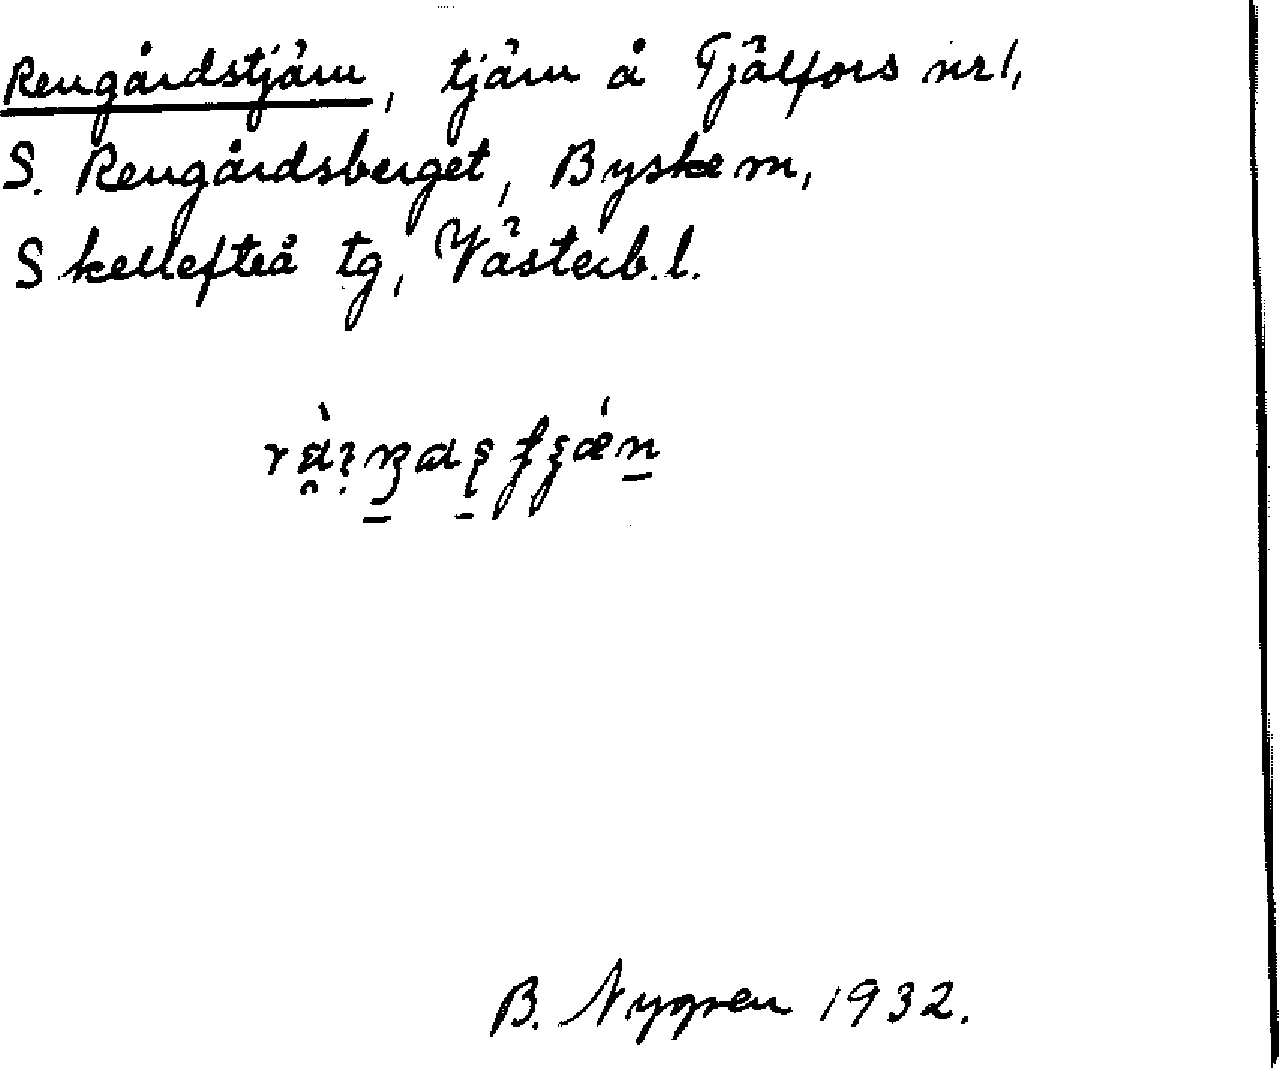 Rengårdstjärn, tjärn å Tjälfors nr 1,
S. Rengårdsberget, Byske m,
Skellefteå tg, Västerb. l.
B. Nygren 1932.